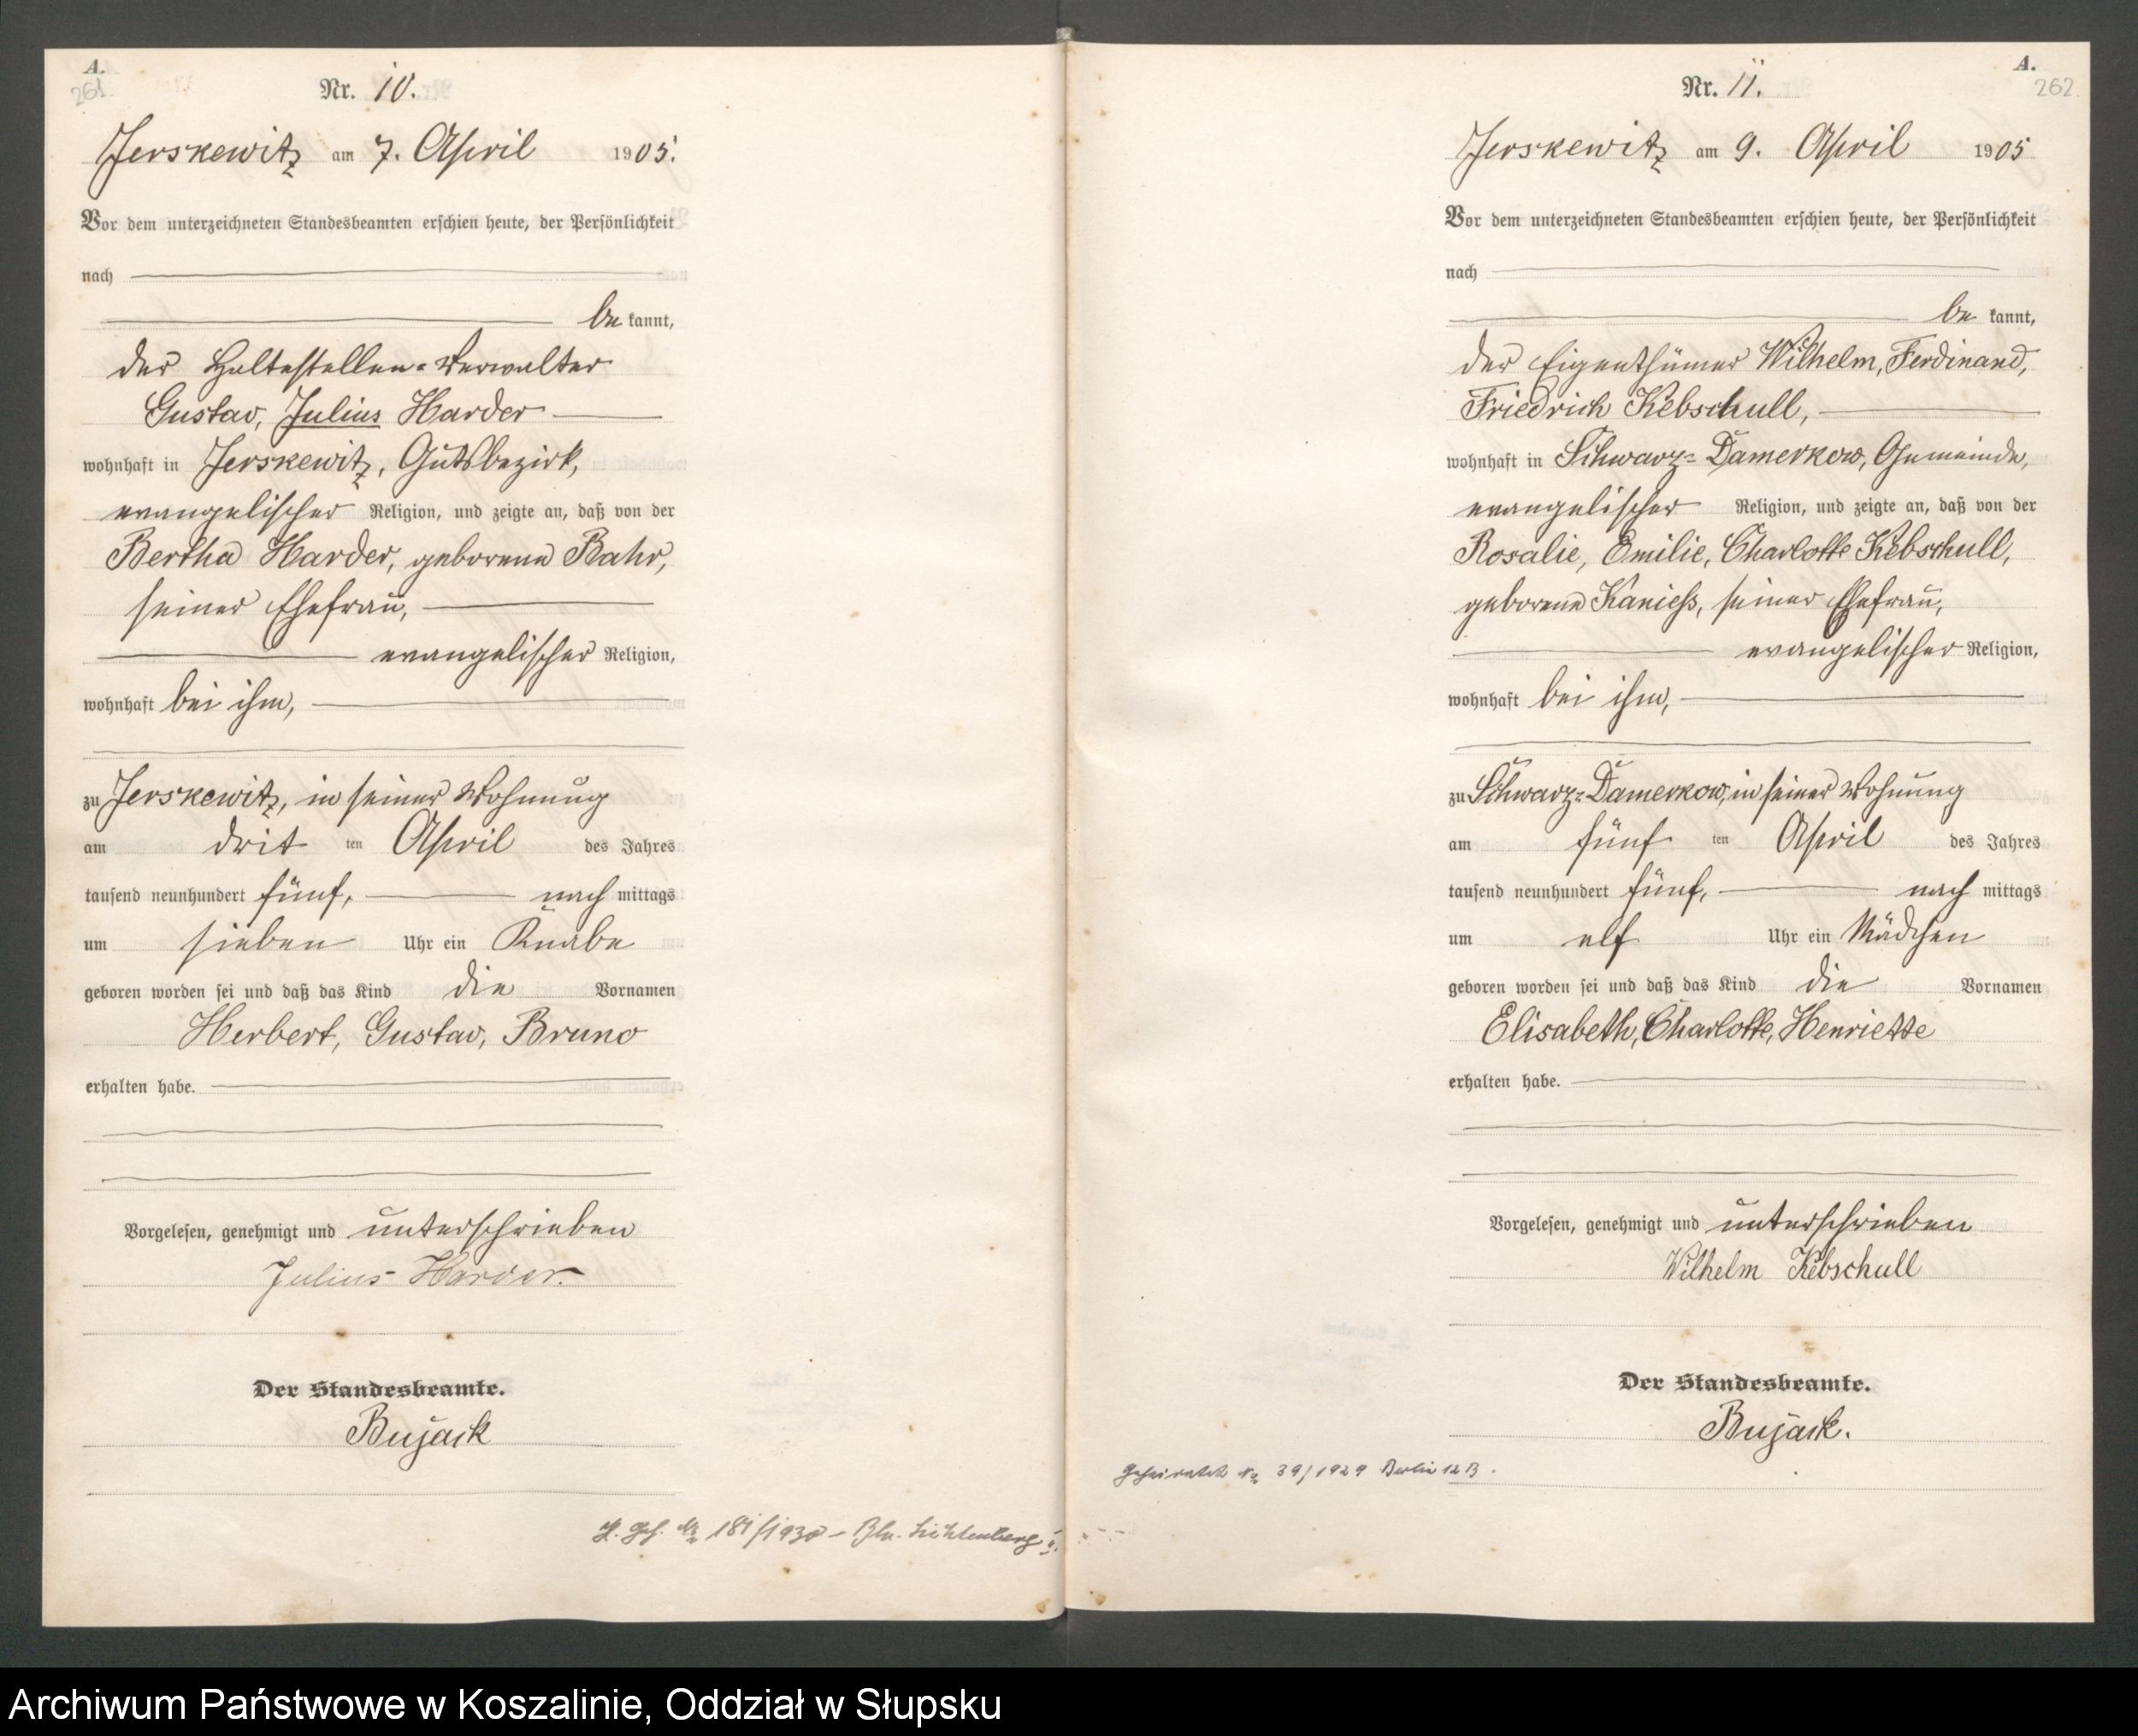 A.
261.
Nr. 10.
Jerskewitz am 7. April 1905.
Vor dem unterzeichneten Standesbeamten erschien heute, der Persönlichkeit
nach
be kannt,
der Haltestellen-Verwalter
Gustav, Julius Harder
wohnhaft in Jerskewitz, Gutsbezirk,
evangelischer Religion, und zeigte an, daß von der
Bertha Harder, geborene Bahr,
seiner Ehefrau,
evangelischer Religion,
wohnhaft bei ihm,
zu Jerskewitz, in seiner Wohnung
am drit ten April des Jahres
tausend neunhundert fünf, nach mittags
um sieben Uhr ein Knabe
geboren worden sei und daß das Kind die Vornamen
Herbert, Gustav, Bruno
erhalten habe.
Vorgelesen, genehmigt und unterschrieben
Julius Harder.
Der Standesbeamte.
Bujack
Nr 181/1930 – Bln. Lichtenberg
A.
262.
Nr. 11.
Jerskewitz am 9. April 1905
Vor dem unterzeichneten Standesbeamten erschien heute, der Persönlichkeit
nach
be kannt,
der Eigenthümer Wilhelm, Ferdinand,
Friedrich Kebschull,
wohnhaft in Schwarz-Damerkow, Gemeinde,
evangelischer Religion, und zeigte an, daß von der
Rosalie, Emilie, Charlotte Kebschull,
geborene Kaniess, seiner Ehefrau,
evangelischer Religion,
wohnhaft bei ihm,
zu Schwarz-Damerkow, in seiner Wohnung
am fünf ten April des Jahres
tausend neunhundert fünf, nach mittags
um elf Uhr ein Mädchen
geboren worden sei und daß das Kind die Vornamen
Elisabeth, Charlotte, Henriette
erhalten habe.
Vorgelesen, genehmigt und unterschrieben
Wilhelm Kebschull
Der Standesbeamte.
Bujack.
Geheiratet Nr 39/1929 Berlin 12 B.
Archiwum Państwowe w Koszalinie, Oddział w Słupsku